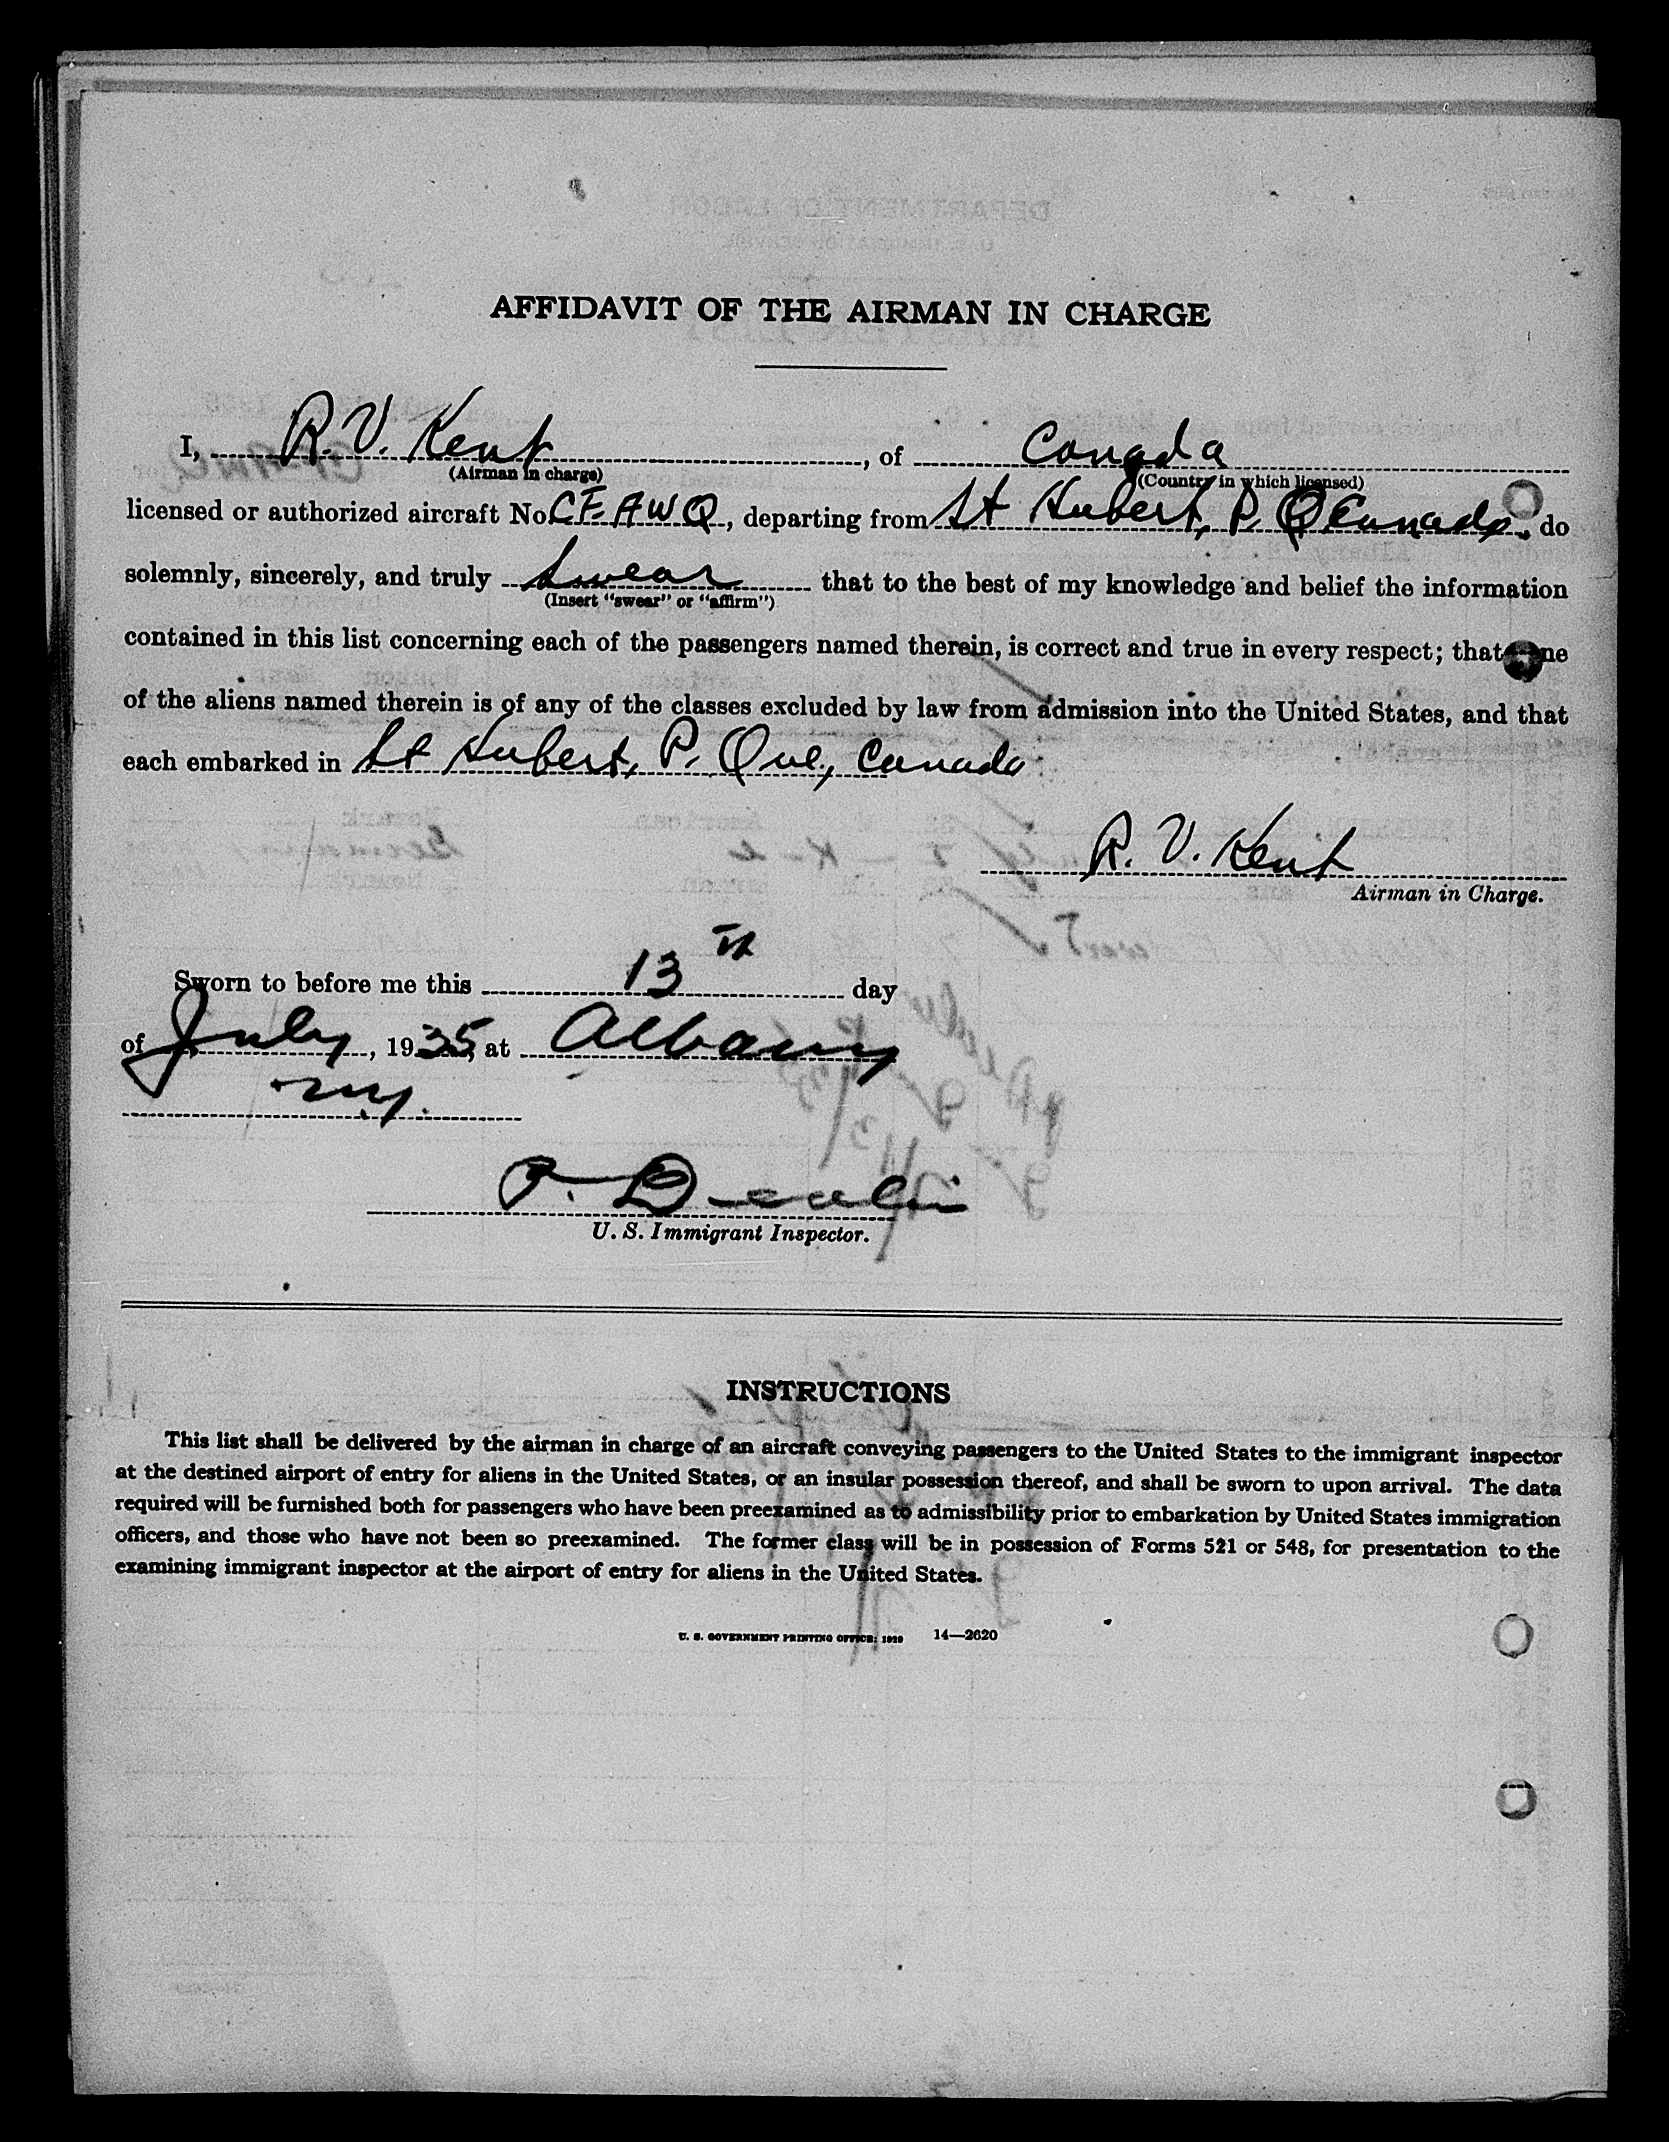 AFFIDAVIT OF THE AIRMAN IN CHARGE
I, R. V. Kent, of Canada
(Airman in charge) (Country in which licensed)
licensed or authorized aircraft No. CF AWQ, departing from St Hubert, P. Q Canada, do
solemnly, sincerely, and truly swear that to the best of my knowledge and belief the information
(Insert "swear" or "affirm")
contained in this list concerning each of the passengers named therein, is correct and true in every respect; that ne
of the aliens named therein is of any of the classes excluded by law from admission into the United States, and that
each embarked in St Hubert, P. Que, Canada
R. V. Kent
Airman in Charge.
Sworn to before me this 13th day
of July, 1935, at Albany
N.Y.
U. S. Immigrant Inspector.
INSTRUCTIONS
This list shall be delivered by the airman in charge of an aircraft conveying passengers to the United States to the immigrant inspector
at the destined airport of entry for aliens in the United States, or an insular possession thereof, and shall be sworn to upon arrival. The data
required will be furnished both for passengers who have been preexamined as to admissibility prior to embarkation by United States immigration
officers, and those who have not been so preexamined. The former class will be in possession of Forms 521 or 548, for presentation to the
examining immigrant inspector at the airport of entry for aliens in the United States.
U. S. GOVERNMENT PRINTING OFFICE: 1929 14—2620